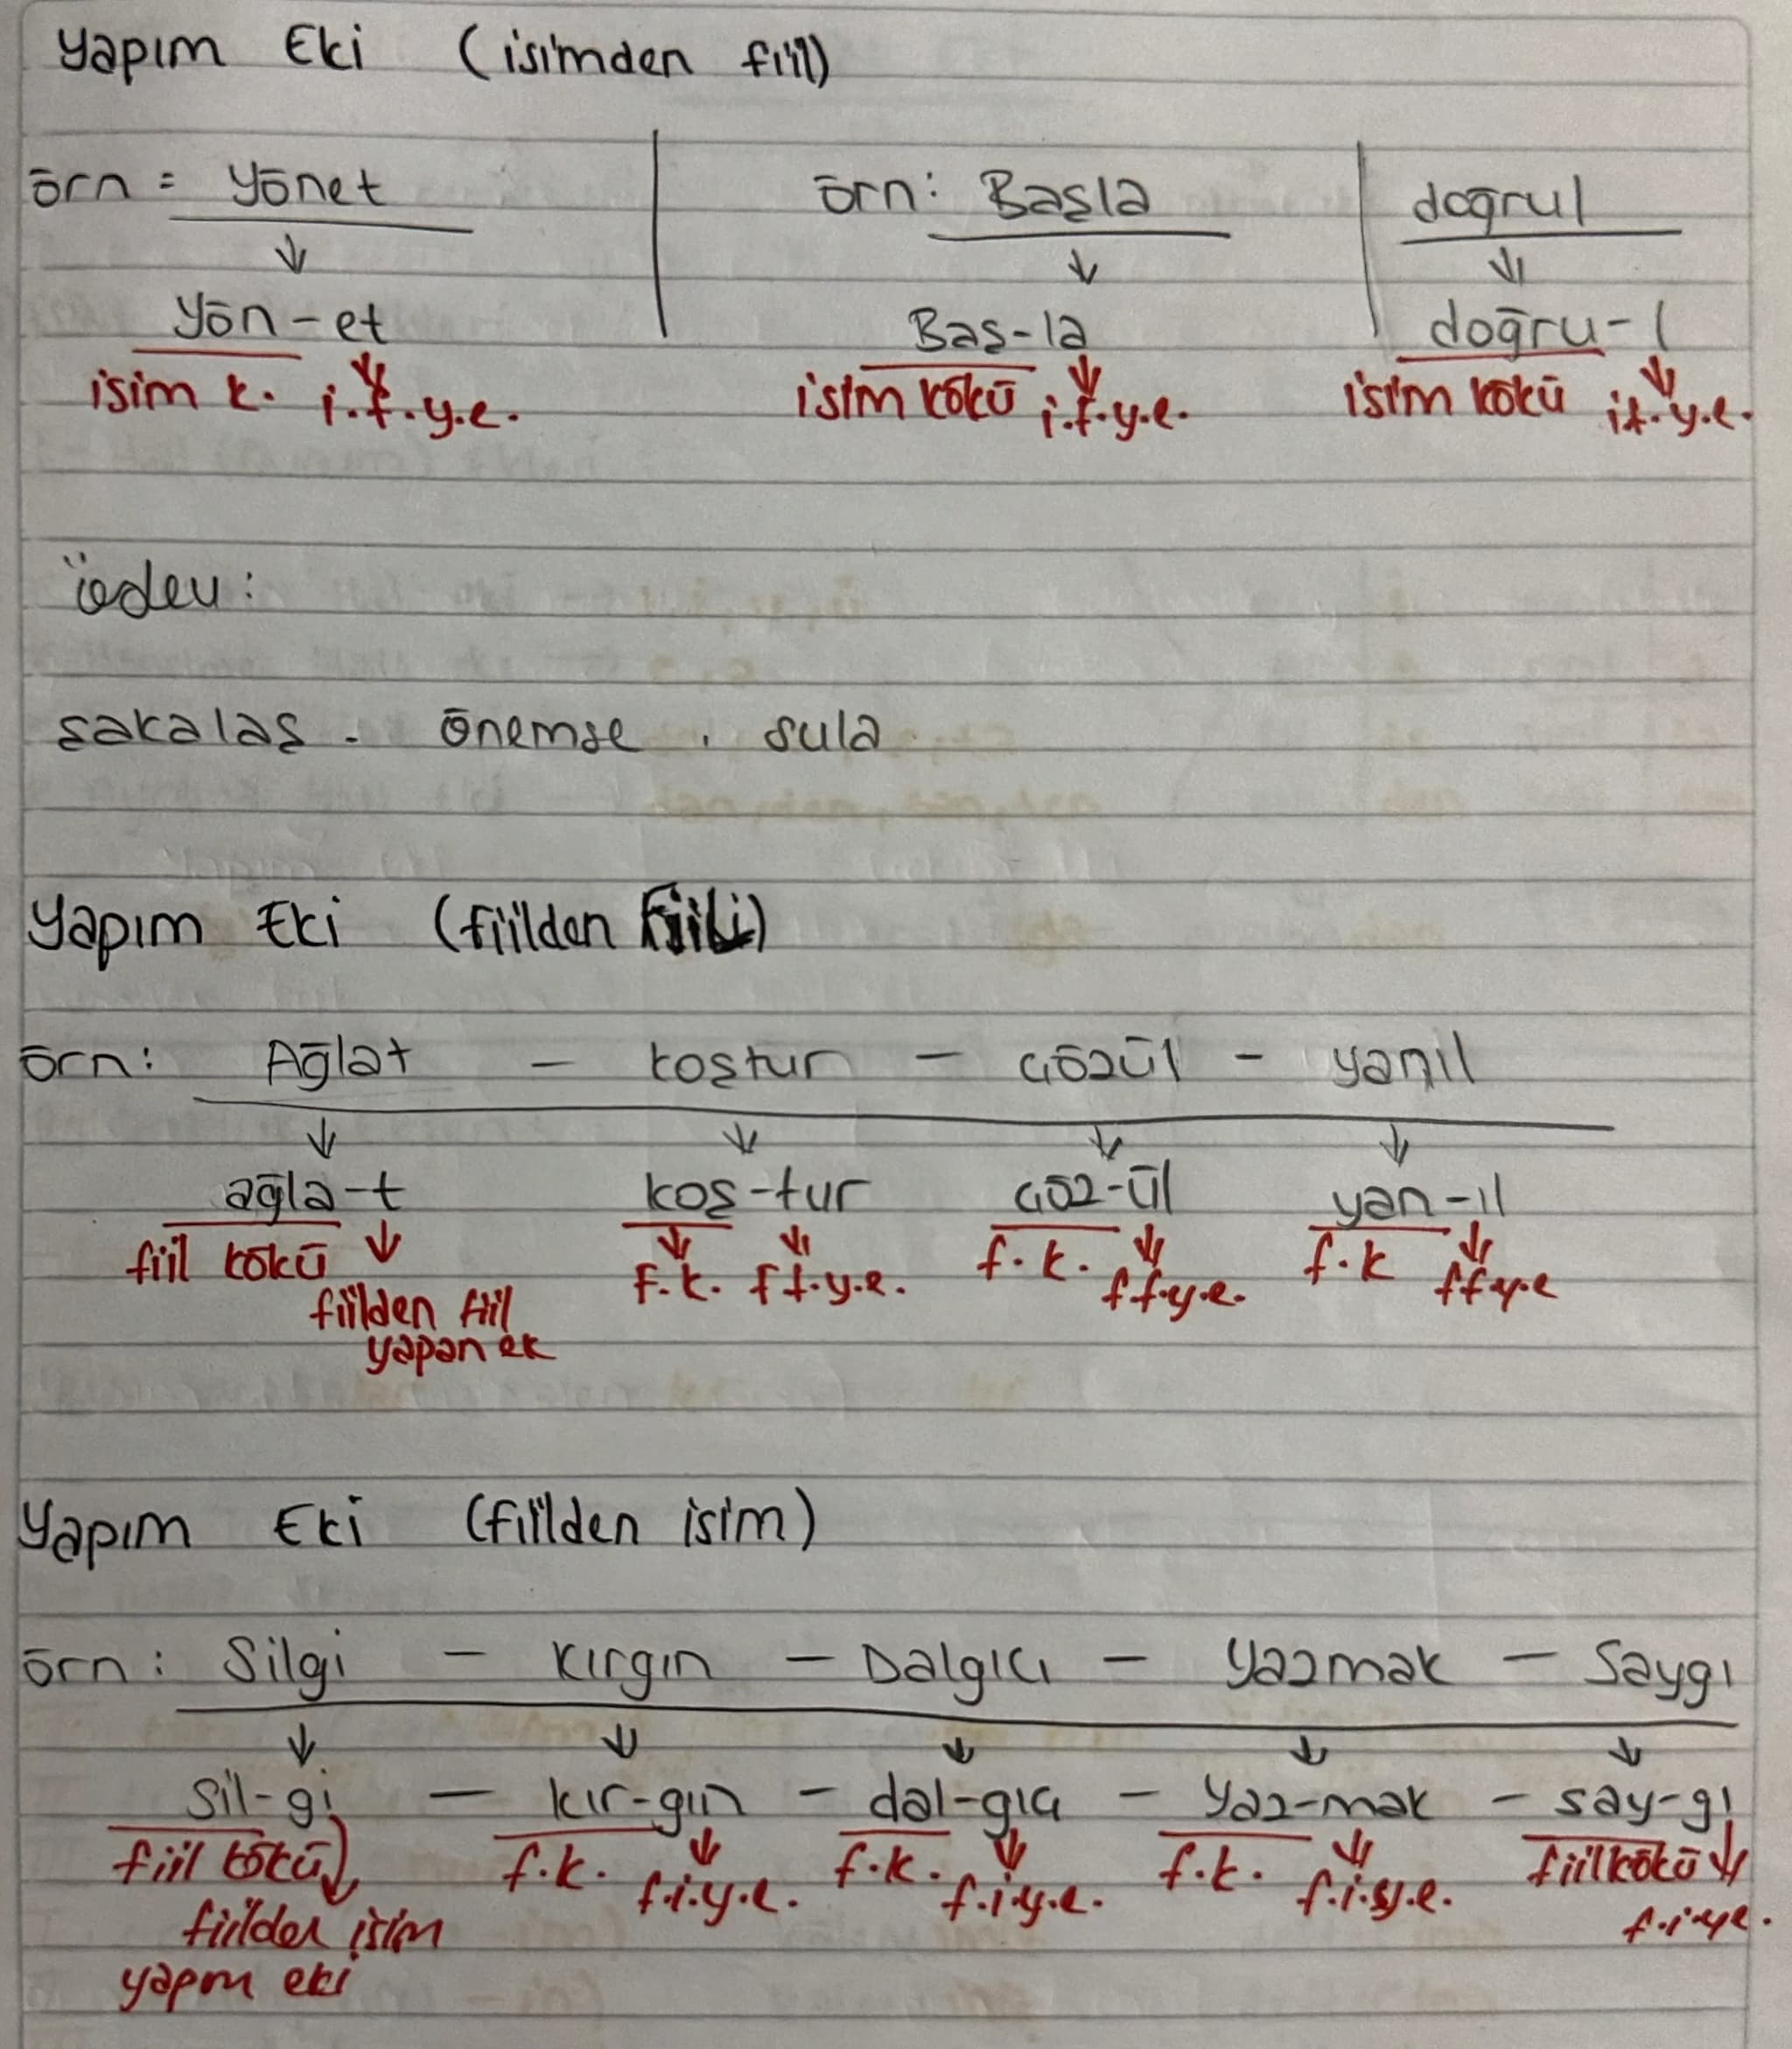 Yapım Eki (isimden fiil)
örn = Yönet örn: Başla doğrul
Yön-et Baş-la doğru-l
isim k. i.f.y.e. isim kökü i.f.y.e. isim kökü if.y.e.
ödev:
şakalaş. önemse, sula
Yapım Eki (fiilden Fiil)
örn: Ağlat - koştur - çözül - yanıl
ağla-t koş-tur çöz-ül yan-ıl
fiil kökü f.k. f f.y.e. f.k. f f.y.e. f.k f f y.e
fiilden fiil
yapan ek
Yapım Eki (fiilden isim)
örn: Silgi - kırgın - Dalgıç - Yazmak - Saygı
Sil-gi - kır-gın - dal-gıç - Yaz-mak - say-gı
fiil kökü f.k. f.i.y.e. f.k. f.i.y.e. f.k. f.i.y.e. fiil kökü
fiilden isim f.i.y.e.
yapım eki